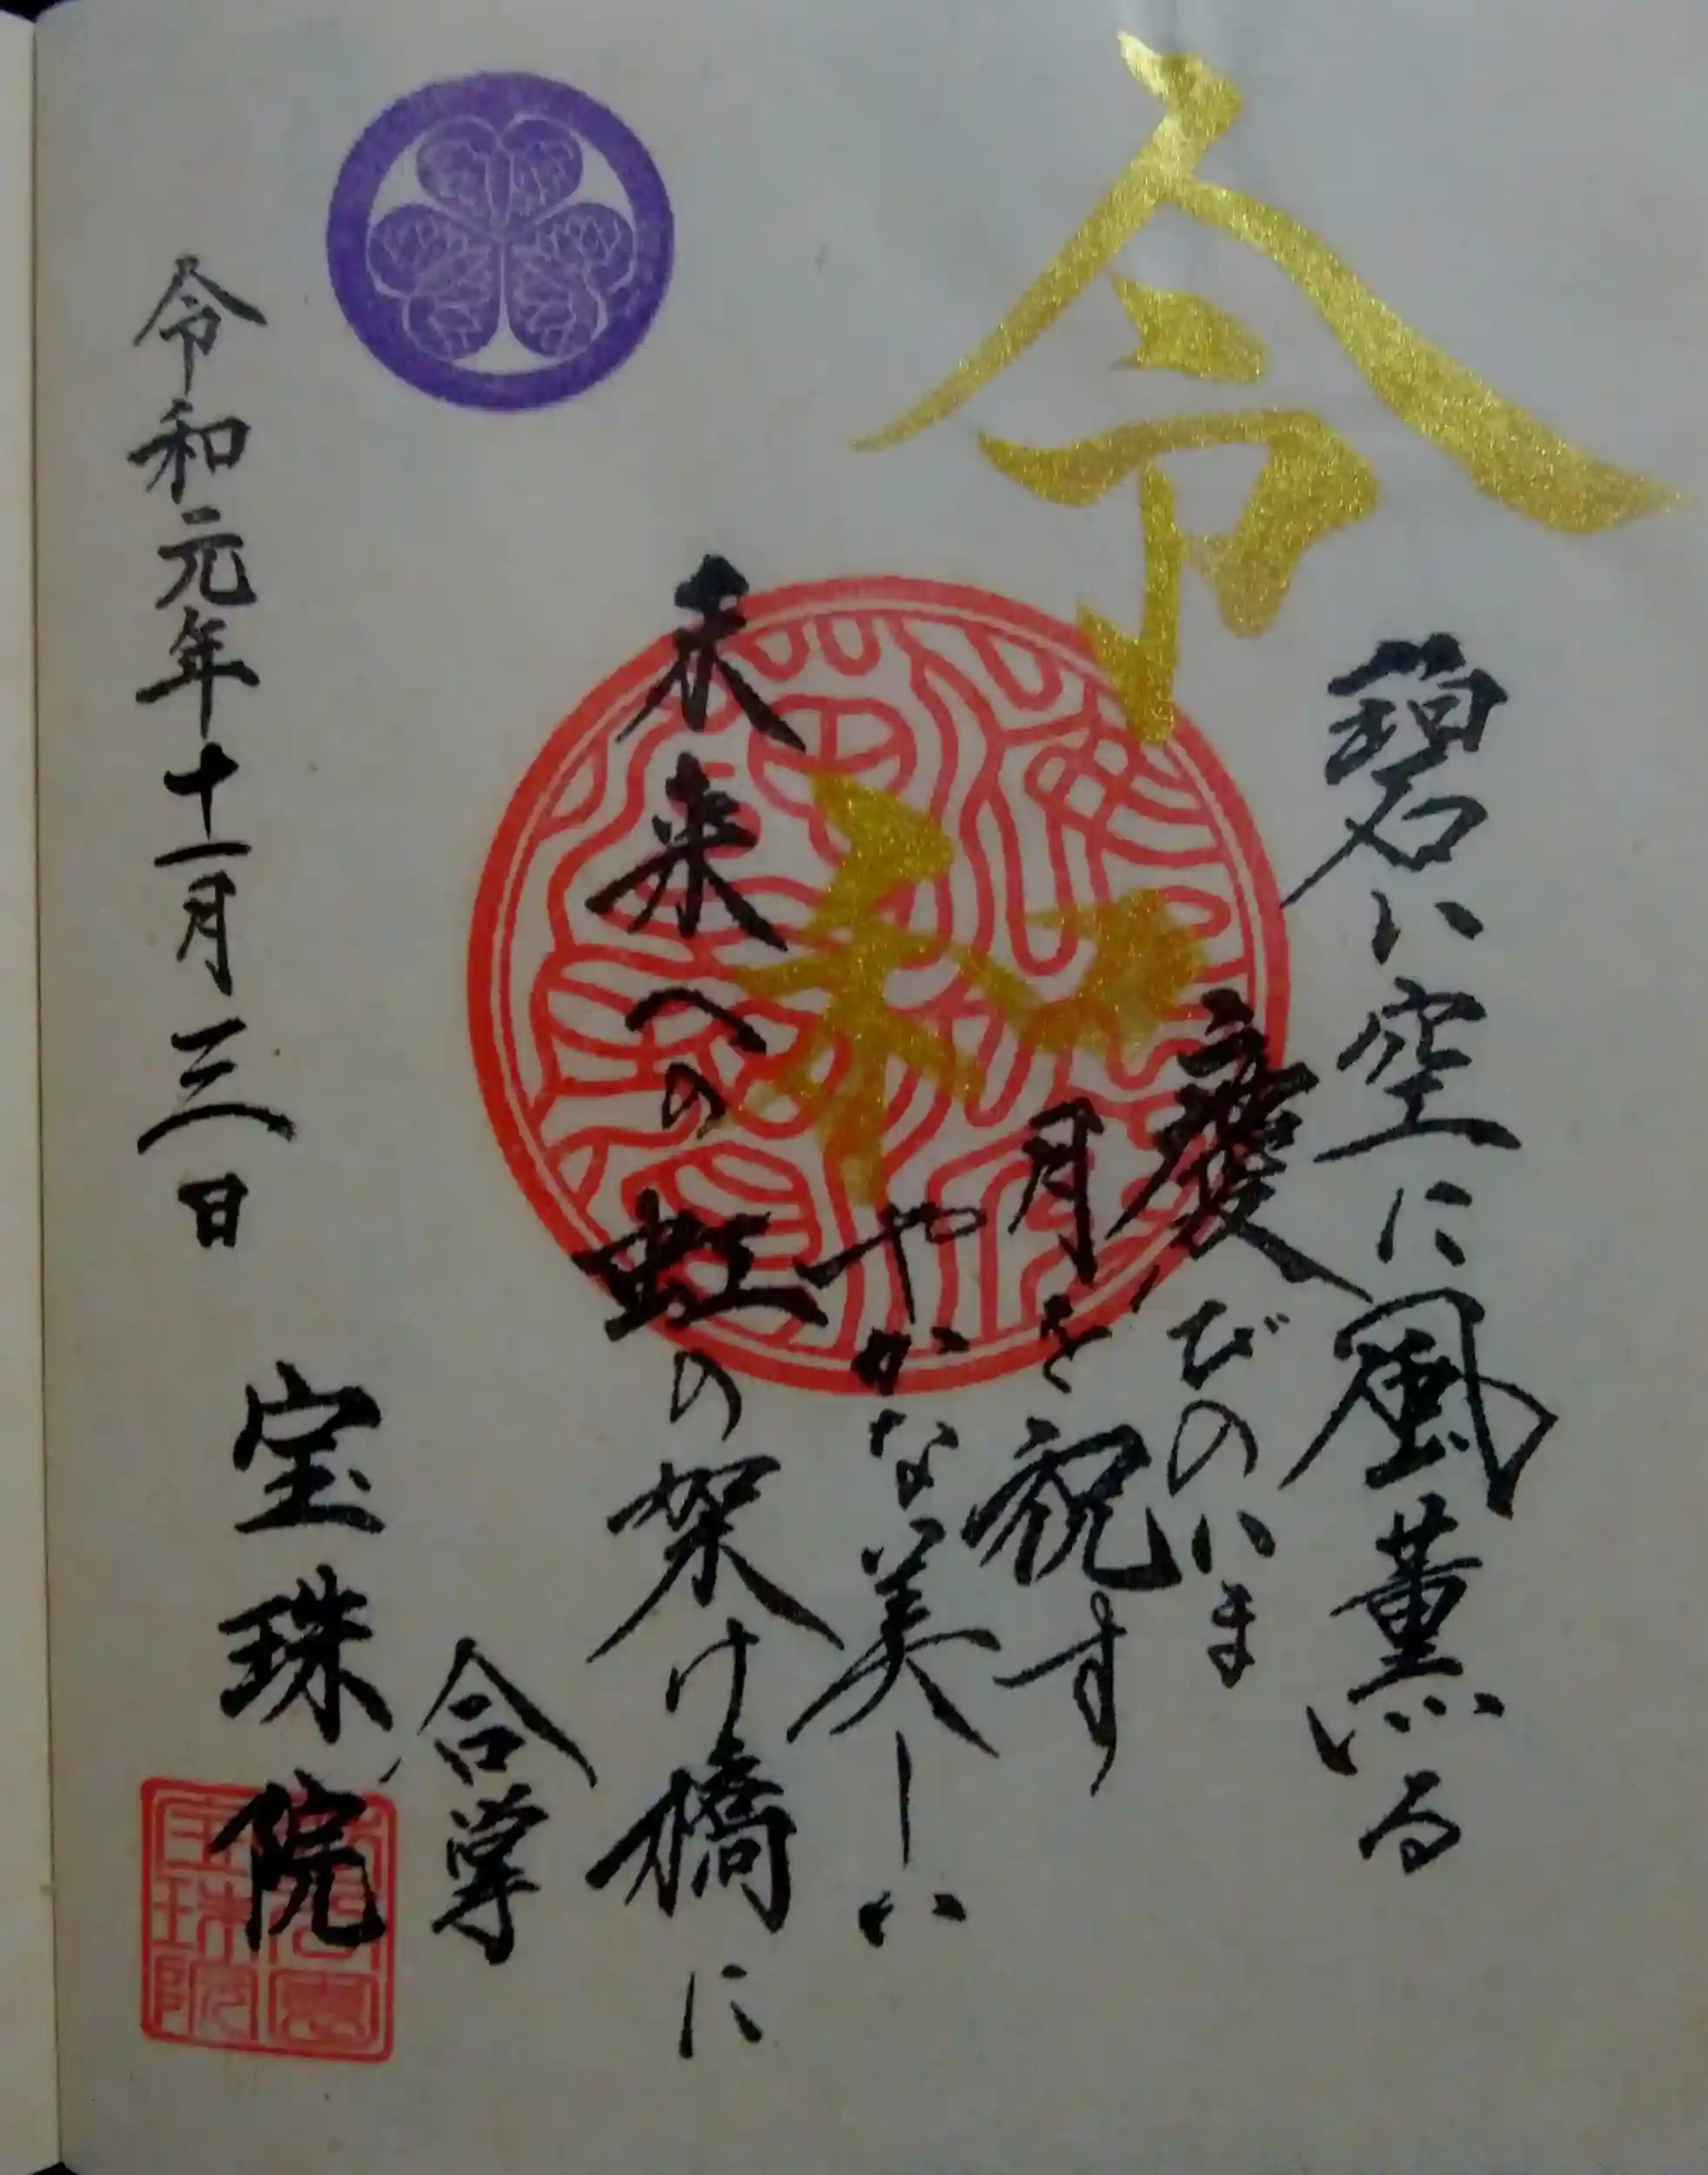 碧い空に風薫る
慶びのいま
令月を祝す
和やかな美しい
未来への虹の架け橋に
合掌
令和元年十一月三日
宝珠院
宝珠院